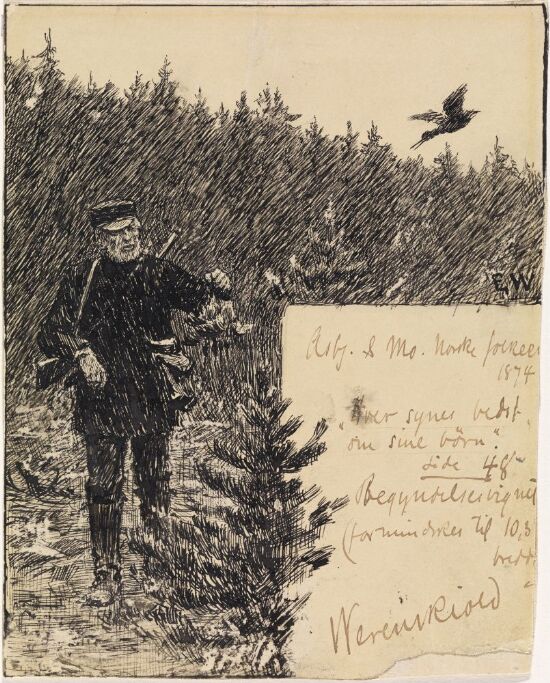 E.W
Asbj. & Mo. Norske folkeev
1874
"Hver synes bedst
om sine börn".
side 48
Begyndelsesvignet
(formindskes til 10,3
bredd.
Werenskiold